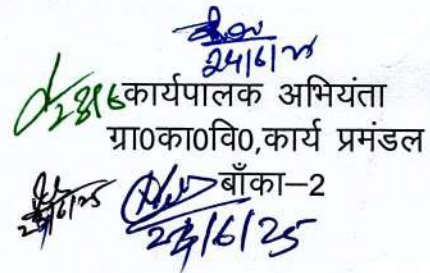 24/6/25
28/6 कार्यपालक अभियंता
ग्रा0का0वि0,कार्य प्रमंडल
बाँका–2
24/6/25